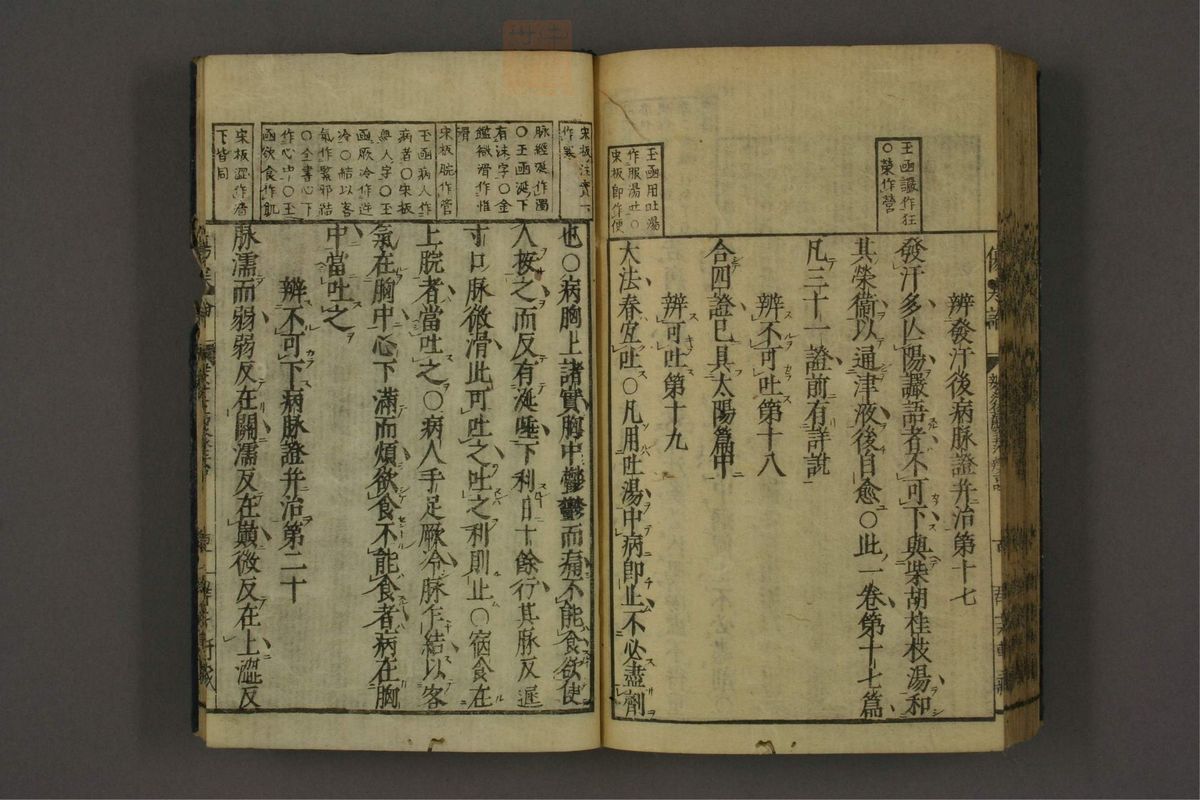 玉函讝作狂
○榮作營
辨發汗後病脉證幷治第十七
發汗多亾陽讝語者不可下與柴胡桂枝湯和
其榮衞以通津液後自愈○此一卷第十七篇
凡三十一證前有詳說
辨不可吐第十八
合四證已具太陽篇中
辨可吐第十九
大法春宜吐○凡用吐湯中病即止不必盡劑
玉函用吐湯
作服湯吐○
宋板即作便
也○病胸上諸實胸中鬱鬱而痛不能食欲使
人按之而反有涎唾下利日十餘行其脉反遲
寸口脉微滑此可吐之吐之利則止○宿食在
上脘者當吐之○病人手足厥冷脉乍結以客
氣在胸中心下滿而煩欲食不能食者病在胸
中當吐之
辨不可下病脉證幷治第二十
脉濡而弱弱反在關濡反在巓微反在上澀反
宋板注實下
作寒
脉經遲作濁
○玉函涎下
有沫字○金
鑑微滑作惟
滑
宋板脘作管
玉函病人作
病者○宋板
無人字○玉
函厥冷作逆
冷○結以客
氣作緊邪結
○全書心下
作心中○玉
函欲食作飢
宋板澀作濇
下皆同